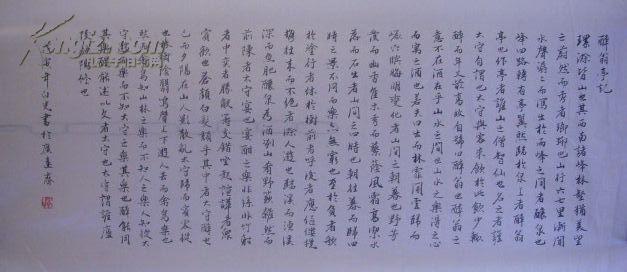 醉翁亭記
環滁皆山也其西南諸峰林壑猶美望
之蔚然而秀者瑯琊也山行六七里漸聞
水聲潺潺而瀉出於兩峰之間者釀泉也
峰回路轉有亭翼然臨於泉上者醉翁
亭也作亭者誰山之僧智仙也名之者誰
太守自謂也太守與客來飲於此飲少輒
醉而年又最高故自號曰醉翁也醉翁之
意不在酒在乎山水之間也山水之樂得之心
而寓之酒也若夫日出而林霏開雲歸而
巖穴暝晦明變化者山間之朝暮也野芳
發而幽香佳木秀而繁蔭風霜高潔水
落而石出者山間之四時也朝往暮而歸四
時之景不同而樂亦無窮也至於負者歌
於塗行者休於樹前者呼後者應傴僂提
攜往來而不絕者滁人遊也臨溪而漁溪
深而魚肥釀泉為酒酒洌山肴野蔌雜然而
前陳者太守宴也宴酣之樂非絲非竹射
者中奕者勝觥籌交錯坐起諠譁者眾
賓歡也蒼顏白髮頹乎其中者太守醉也
已而夕陽在山人影散亂太守歸而賓客從
也樹林陰翳鳴聲上下遊人去而禽鳥樂也
然禽鳥知山林之樂而不知人之樂人知從太
守遊而樂而不知太守之樂其樂也醉能同
其樂醒能述以文者太守也太守謂誰廬
陵歐陽修也
戊寅年 書於廣 齋